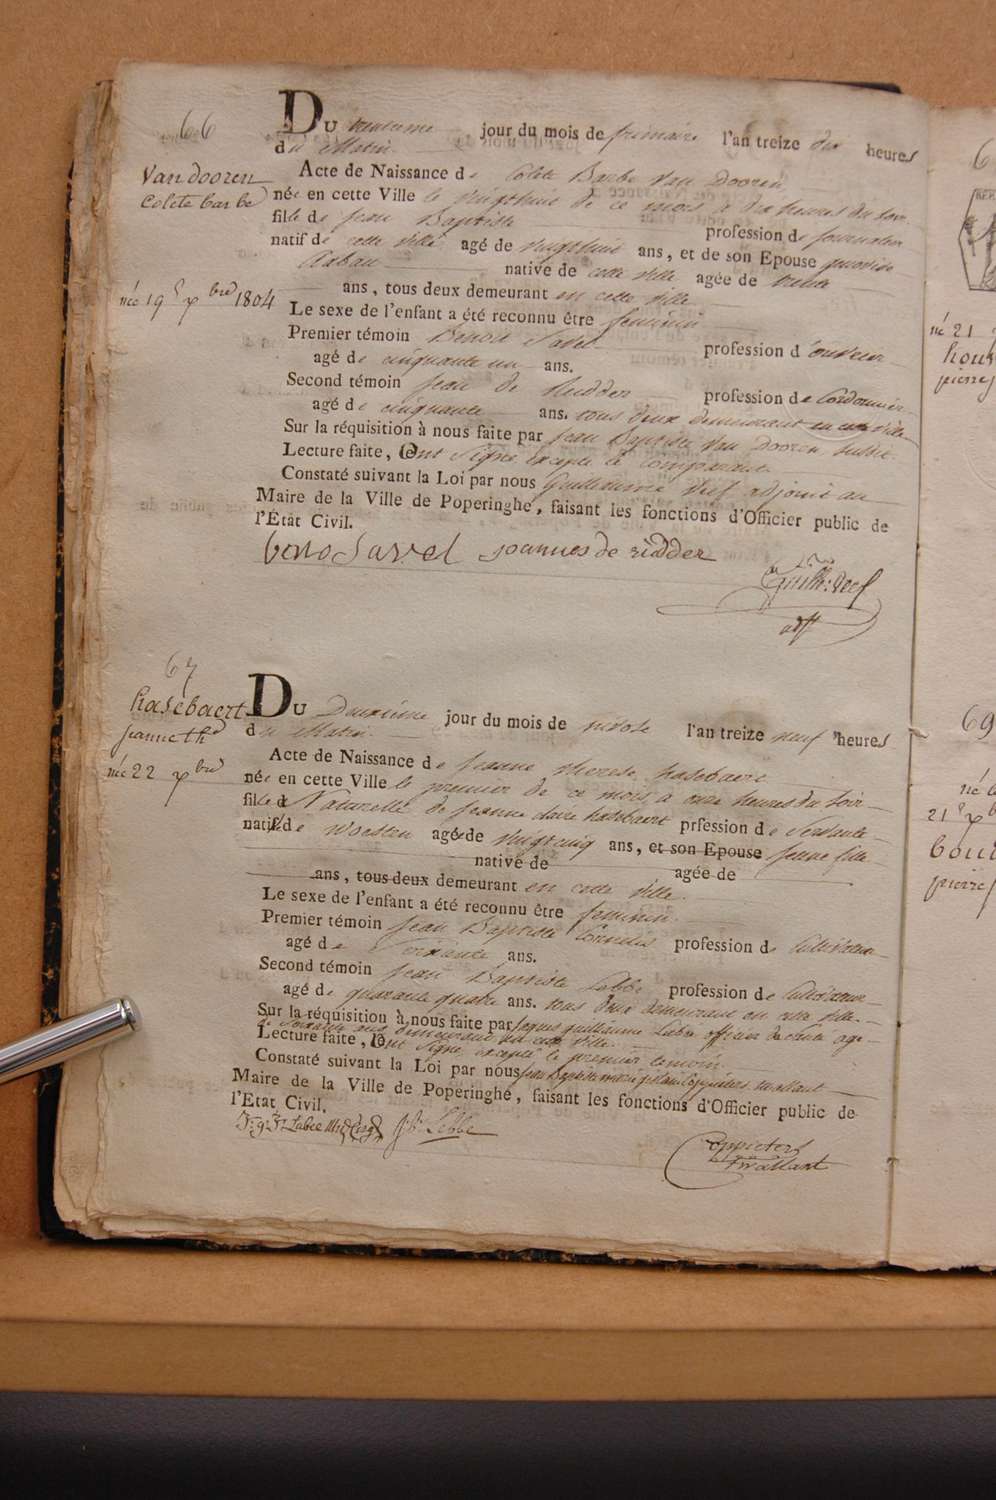 66
Van dooren
Colete barbe
née 19 xbre 1804
DU trentieme jour du mois de frimaire l'an treize dix heures
du Matin
Acte de Naissance de Colete Barbe Van Dooren
née en cette Ville le vingthuit de ce mois à dix heures du soir
fille de Jean Baptiste profession de journalier
natif de cette ville agé de vingthuit ans, et de son Epouse
native de cette ville agée de trente
ans, tous deux demeurant en cette ville
Le sexe de l'enfant a été reconnu être feminin
Premier témoin Benoit Savel profession d'ouvrier
agé de cinquante un ans.
Second témoin Jean de Ridder profession de Cordonnier
agé de cinquante ans. tous deux demeurant en cette ville
Sur la réquisition à nous faite par Jean Baptiste Van Dooren susdit
Lecture faite, ont signé excepté le comparant
Constaté suivant la Loi par nous Guillaume adjoint au
Maire de la Ville de Poperinghe, faisant les fonctions d'Officier public de
l'État Civil.
beno Savel joannes de ridder
Guill:
adjt
67
hasebaert
jeanne th
née 22 xbre
DU Deuxième jour du mois de nivose l'an treize neuf heures
du Matin
Acte de Naissance de Jeanne therese hasebaert
née en cette Ville le premier de ce mois à onze heures du soir
fille Naturelle de Jeanne claire hasebaert prfession de Servante
natif de Woesten agée de vingt cinq ans, et son Epouse jeune fille
native de agée de
ans, tous deux demeurant en cette ville
Le sexe de l'enfant a été reconnu être feminin.
Premier témoin Jean Baptiste Cornelis profession de Cultivateur
agé de Soixante ans.
Second témoin Jean Baptiste Lebbe profession de Cultivateur
agé de quarante quatre ans. tous deux demeurant en cette ville.
Sur la réquisition à nous faite par Jaques guillaume Labre officier de santé agé
de soixante ans demeurant en cette ville.
Lecture faite, ont signé excepté le premier temoin
Constaté suivant la Loi par nous Jean Baptiste
Maire de la Ville de Poperinghe, faisant les fonctions d'Officier public de
l'Etat Civil.
J: B: Lebbe
Coppieters
twallant
6
né 21
pierre
69
né le
21 xb
pierre